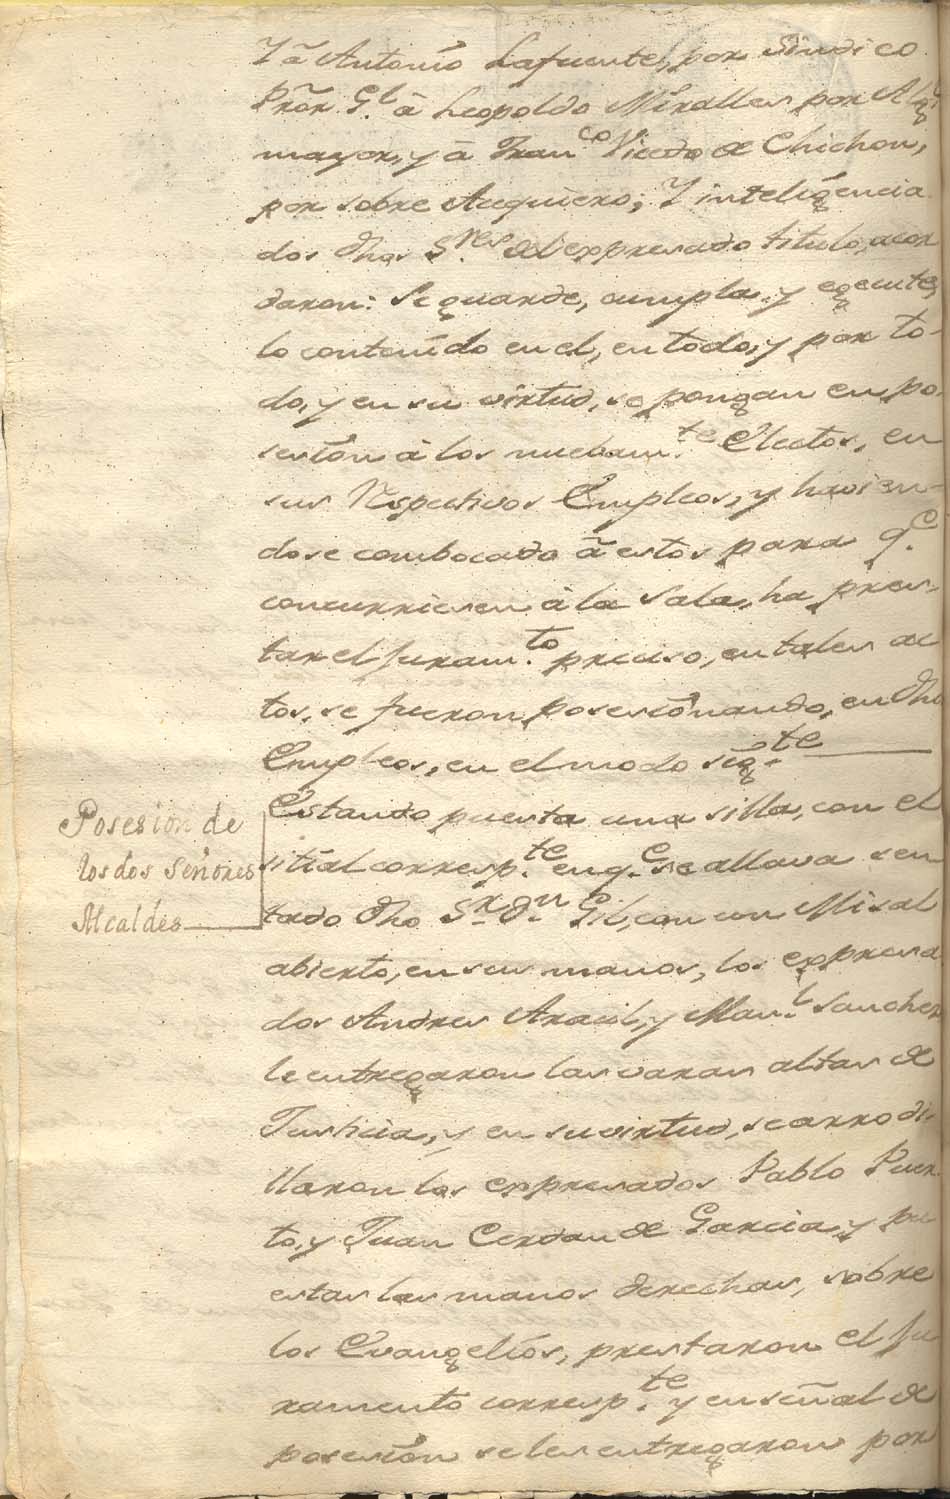 Y à Antonio Lafuente, por Sindico
Pror. Gl. à Leopoldo Miralles por Alg.l
mayor, y à Franco. Vicedo de Chichon,
por sobre Acequiero; Y inteligencia
dos dhos Sres. del expresado titulo, acor
daron: Se guarde, cumpla, y egecute,
lo contenido en el, en todo, y por to-
do, y en su virtud, se pongan en po-
sesion à los nuebamte. Electos, en
sus Respectivos Empleos, y havien-
dose combocado à estos para qe.
concurriesen à la Sala, ha pres-
tar el juramto. preciso, en tales ac
tos, se fueron posesionando, en dho
Empleos, en el modo sigte.
Posesion de
los dos Señores
Alcaldes
Estando puesta una silla, con el
sitial correspte. en qe. se allava sen
tado dho Sr. Dn. Gil, con un Misal
abierto, en sus manos, los expresa
dos Andres Aracil, y Manl. Sanchez
le entregaron las varas altas de
Justicia, y en su virtud, se arrodi-
llaron los expresados Pablo Puer
to, y Juan Cerdan de Garcia, y pu
estas las manos derechas, sobre
los Evangelios, prestaron el ju
ramento correspte. y en señal de
posesion se les entregaron por